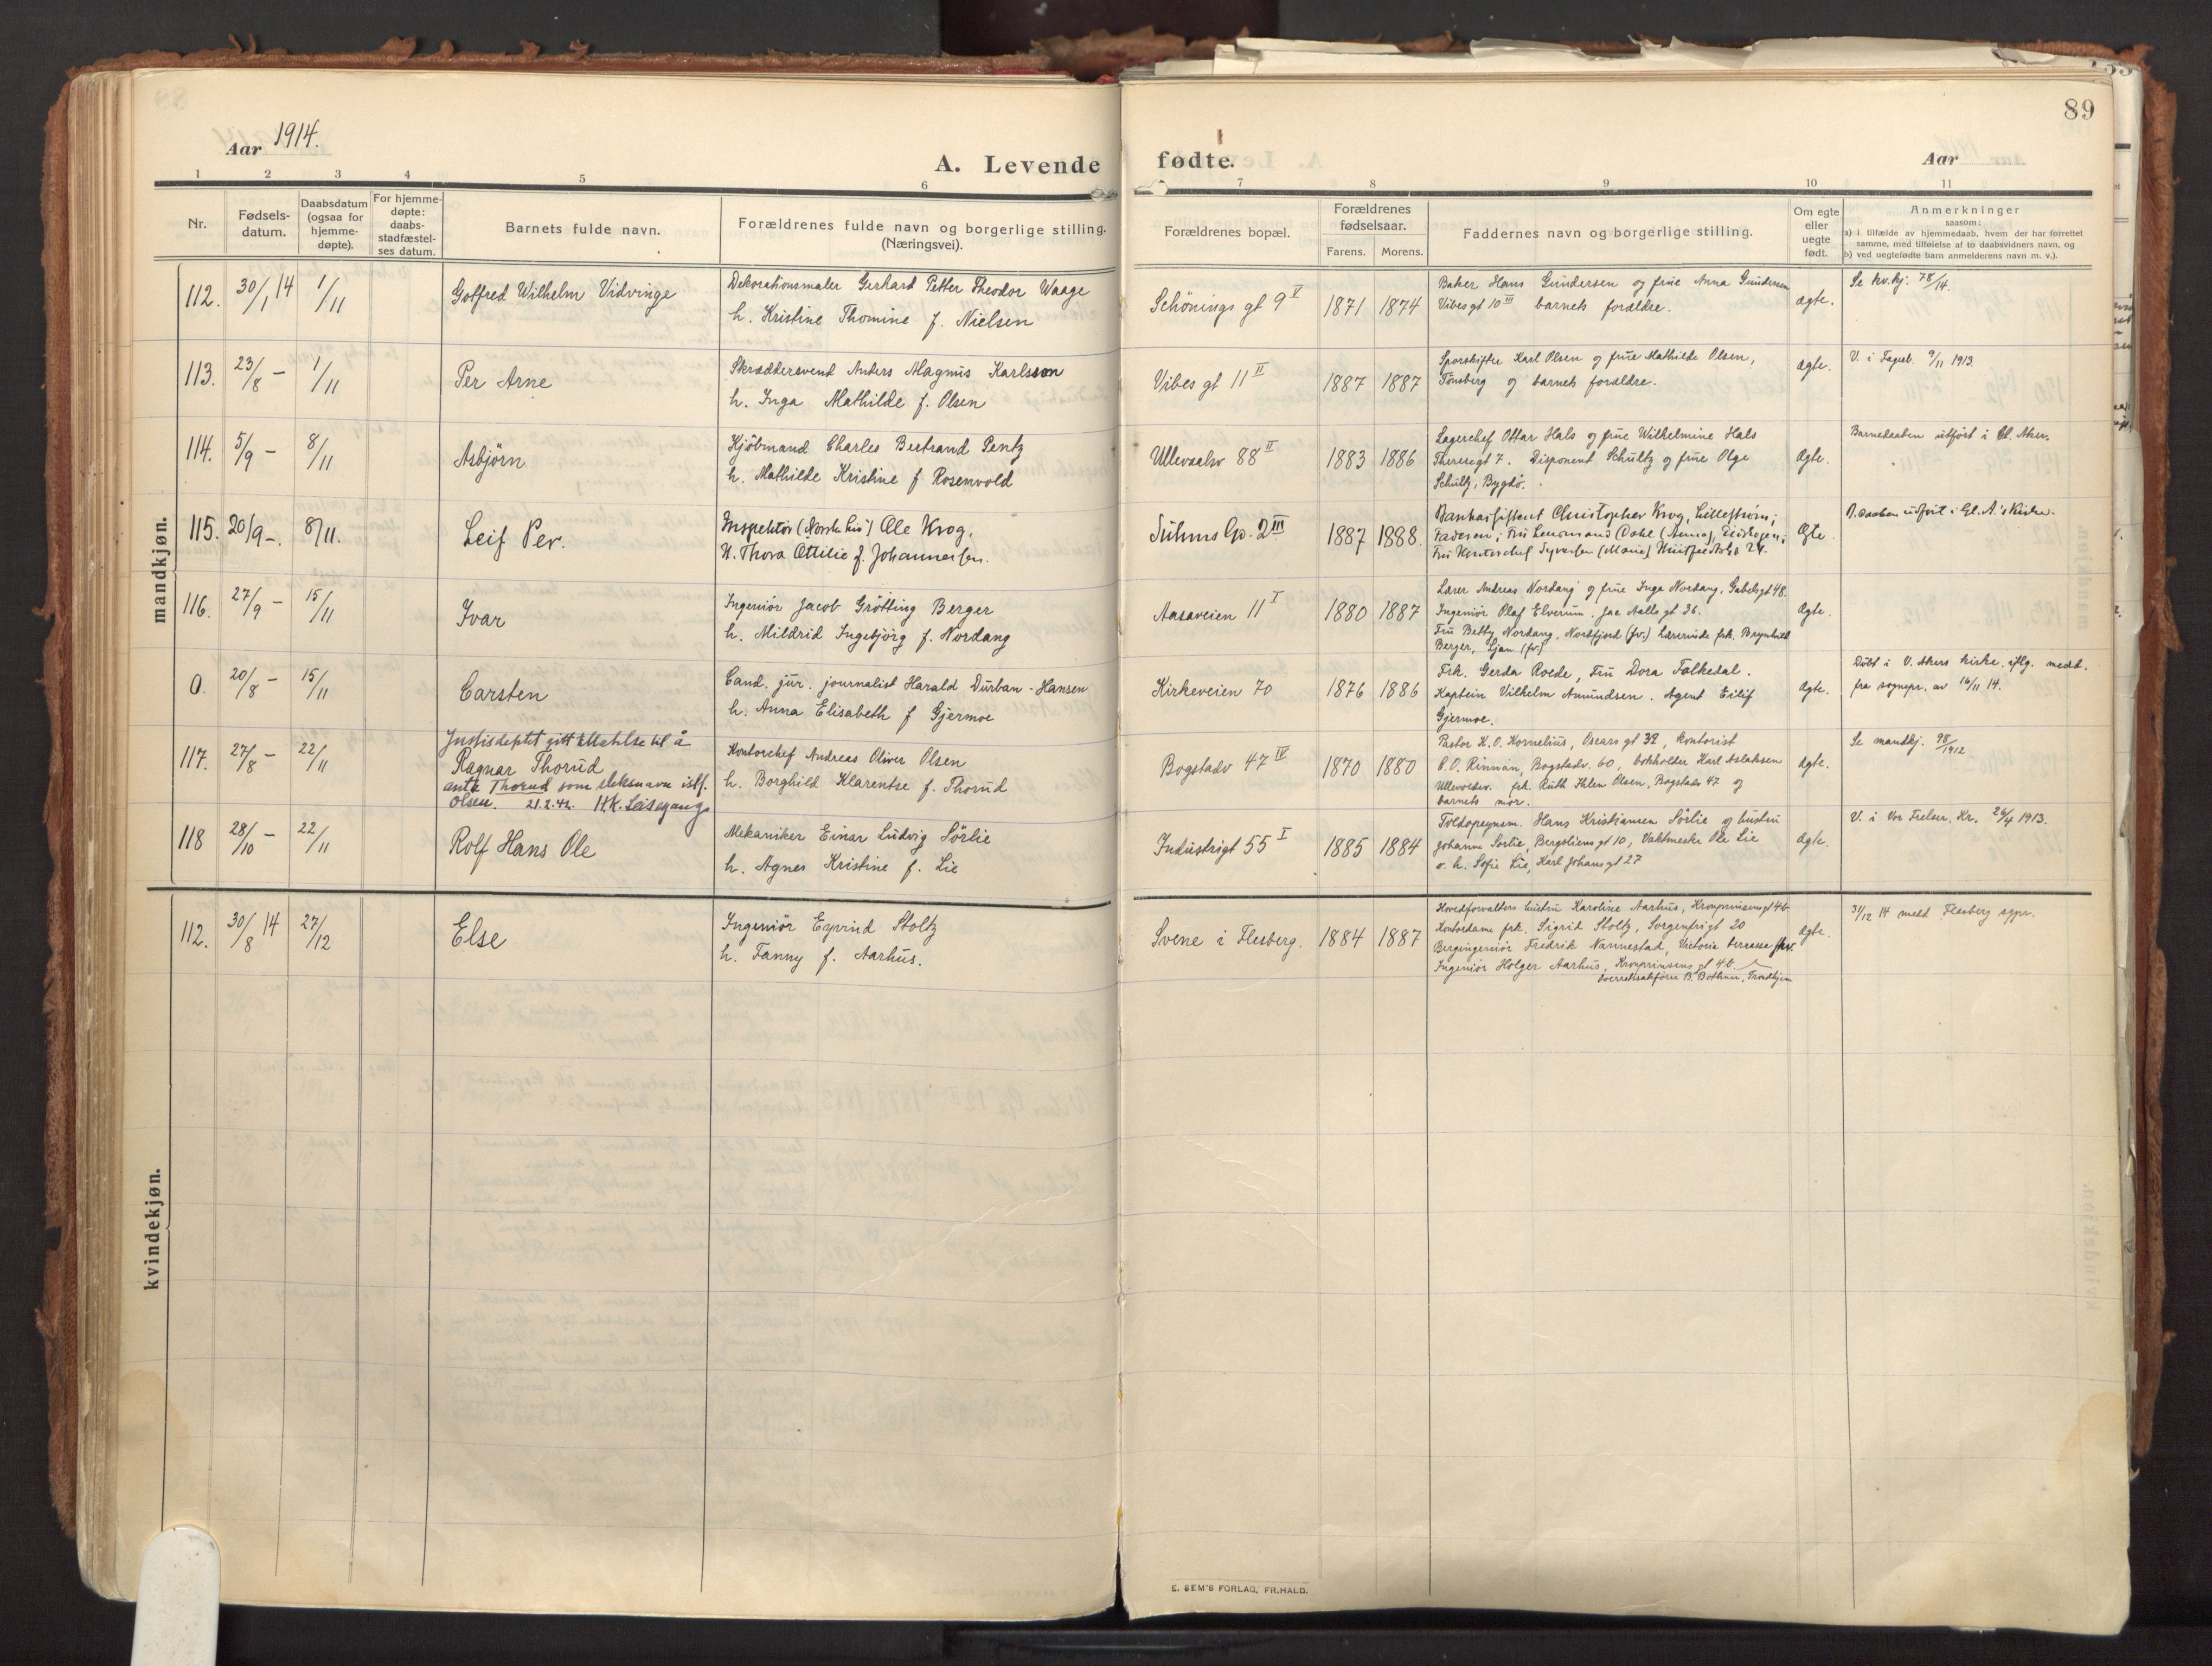 89
Aar 1914.
A. Levende fødte.
Aar
1 2 3 4 5 6 7 8 9 10 11
Nr.
Fødsels-
datum.
Daabsdatum
(ogsaa for
hjemme-
døpte).
For hjemme-
døpte:
daabs-
stadfæstel-
ses datum.
Barnets fulde navn.
Forældrenes fulde navn og borgerlige stilling.
(Næringsvei).
Forældrenes bopæl.
Forældrenes
fødselsaar.
Farens. Morens.
Faddernes navn og borgerlige stilling.
Om egte
eller
uegte
født.
Anmerkninger
saasom:
a) i tilfælde av hjemmedaab, hvem der har forrettet
samme, med tilføielse af to daabsvidners navn, og
b) ved uegtefødte barn anmelderens navn m. v.).
mandkjøn.
112. 30/1 14 1/11
Gotfred Wilhelm Vidvinge
Dekorationsmaler Gerhard Petter Theodor Waage
h. Kristine Thomine f. Nielsen
Schönings gt 9 V
1871 1874
Baker Hans Gundersen og frue Anna Gundersen
Vibesgt 10 III barnets forældre.
ægte.
Se kv.kj. 78/14.
113. 23/8 - 1/11
Per Arne
Skræddersvend Anders Magnus Karlsson
h. Inga Mathilde f. Olsen
Vibes gt 11 II
1887 1887
Sporskifter Karl Olsen og frue Mathilde Olsen,
Tønsberg og barnets forældre.
ægte.
V. i Fageb. 9/11 1913.
114. 5/9 - 8/11
Asbjörn
Kjöbmand Charles Bertrand Pentz
h. Mathilde Kristine f. Rosenvold
Ullevaalsv 88 II
1883 1886
Lagerchef Ottar Hals og frue Wilhelmine Hals
Theresegt 7. Disponent Schultz og frue Olga
Schultz, Bygdö.
ægte.
Barnedaaben utfört i Gl. Aker.
115. 20/9 -. 8/11.
Leif Per.
Inspektör (Norske Liv) Ole Krog,
H. Thora Ottilie f. Johannesen.
Suhms Gt. 2 III
1887 1888.
Christopher Krog, Lillestrøm;
Faderen; Fru (Anna),
Fru Kontorchef Syversen (Marie)
Ægte
B. daaben utfört i Gl. A.'s Kirke.
116. 27/9 - 15/11
Ivar
Ingeniör Jacob Grötting Berger
h. Mildrid Ingebjörg f. Nordang
Aasaveien 11 I
1880 1887
Lærer Andreas Nordang og frue Inga Nordang, Gabelsgt 48.
Ingeniör Olaf Elverum. Jac Aalls gt 36.
Fru Betty Nordang, Nordfjord (fv.) Lærerinde frk. Brynhild
Berger, Ljan (fv.)
ægte.
0. 20/8 - 15/11
Carsten
Cand. jur. journalist Harald Durban-Hansen
h. Anna Elisabeth f Gjermoe
Kirkeveien 70
1876 1886
Frk. Gerda Roede, Fru Dora Falkedal.
Kaptein Vilhelm Amundsen. Agent Eilif
Gjermoe.
ægte.
Döbt i V. Akers kirke, iflg. medd.
fra sognepr. av 16/11 14.
117. 27/8 - 22/11
Justisdeptet gitt tillatelse til å
Ragnar Thorud
anta Thorud som slektsnavn istf.
Olsen. 21.2.42. H.K. Leisegang
Kontorchef Andreas Oliver Olsen
h. Borghild Klarentse f. Thorud
Bogstadv 47 IV
1870 1880
Pastor K. O. Kornelius, Oscars gt 32, kontorist
P. O. Rinnan, Bogstadv. 60, bokholder Karl Aslaksen
Ullevoldsv. frk. Ruth Ihlen Olsen, Bogstadv 47 og
barnets mor.
ægte.
Se mandkj. 98/1912
118 28/10 - 22/11
Rolf Hans Ole
Mekaniker Einar Ludvig Sörlie
h. Agnes Kristine f. Lie
Industrigt 55 I
1885 1884
Toldopsynsm. Hans Kristiansen Sörlie og hustru
Johanne Sörlie, Bergsliensgt 10, Vaktmester Ole Lie
o. h. Sofie Lie, Karl Johans gt 27
ægte.
V. i Vor Frelser, Kr. 26/4 1913.
kvindekjøn.
112. 30/8 14 27/12
Else
Ingeniör Eyvind Stoltz
h. Fanny f. Aarhus.
Svene i Flesberg.
1884 1887
Hovedforvalters hustru Karoline Aarhus, Kronprinsensgt 4b
Kontordame frk. Sigrid Stoltz, Sorgenfrigt 20
Bergingeniör Fredrik Nannestad, Victoria terrasse
Ingeniör Holger Aarhus, Kronprinsens gt 4b.
Overretssakförer B. Bothner, Trondhjem
ægte.
31/12 14 medd Flesberg sgpr.
E. SEM'S FORLAG, FR.HALD.